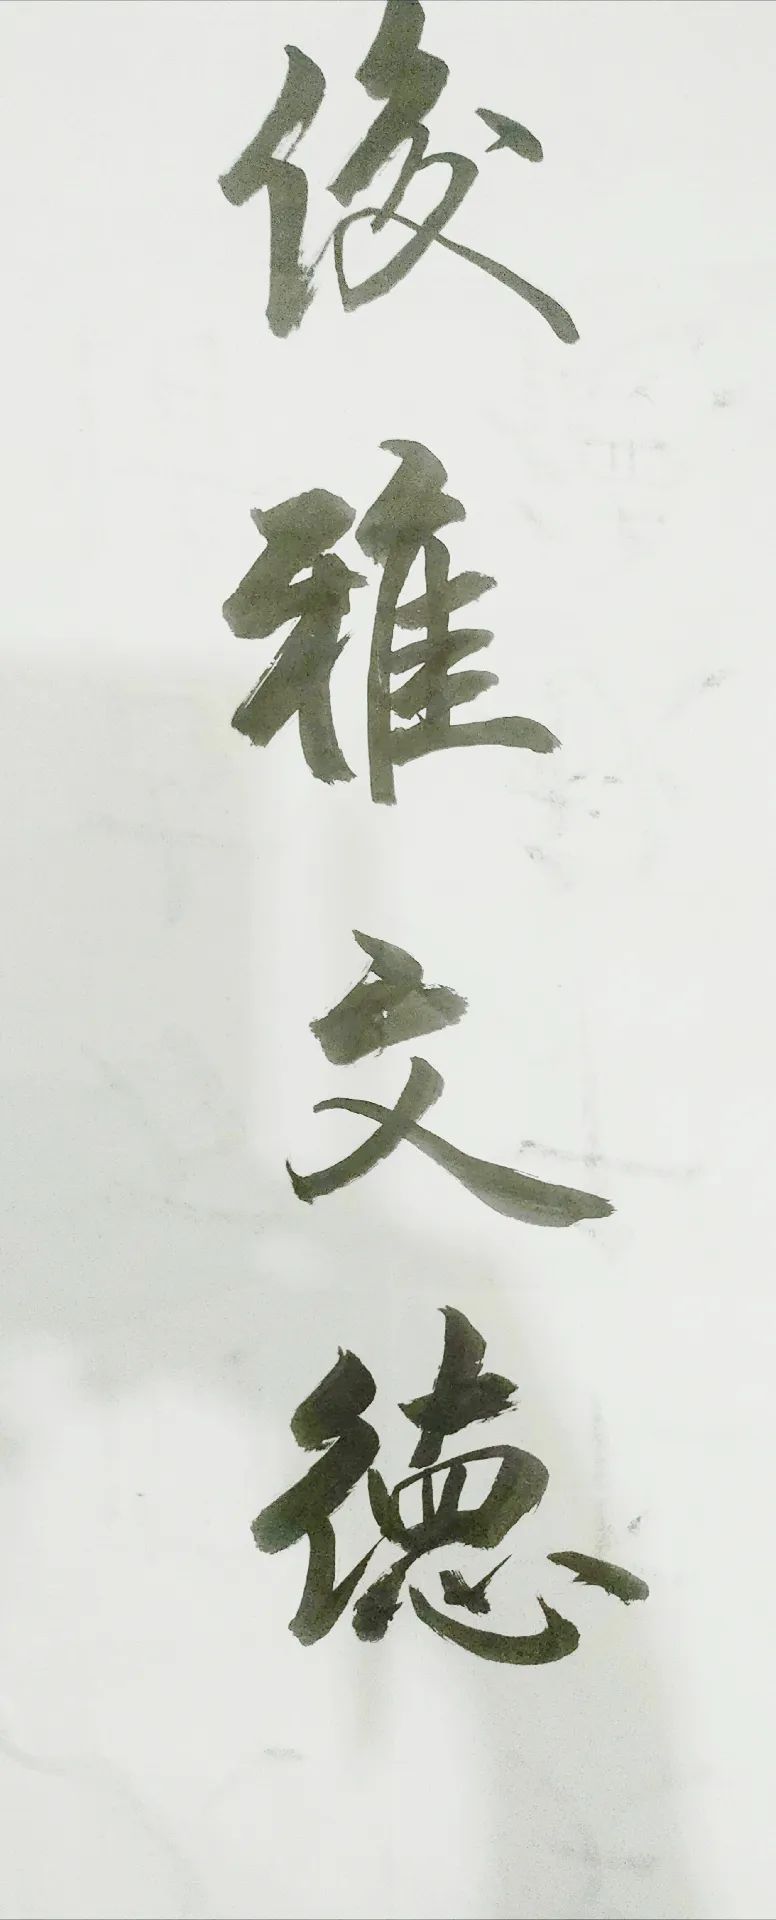 俊雅文德